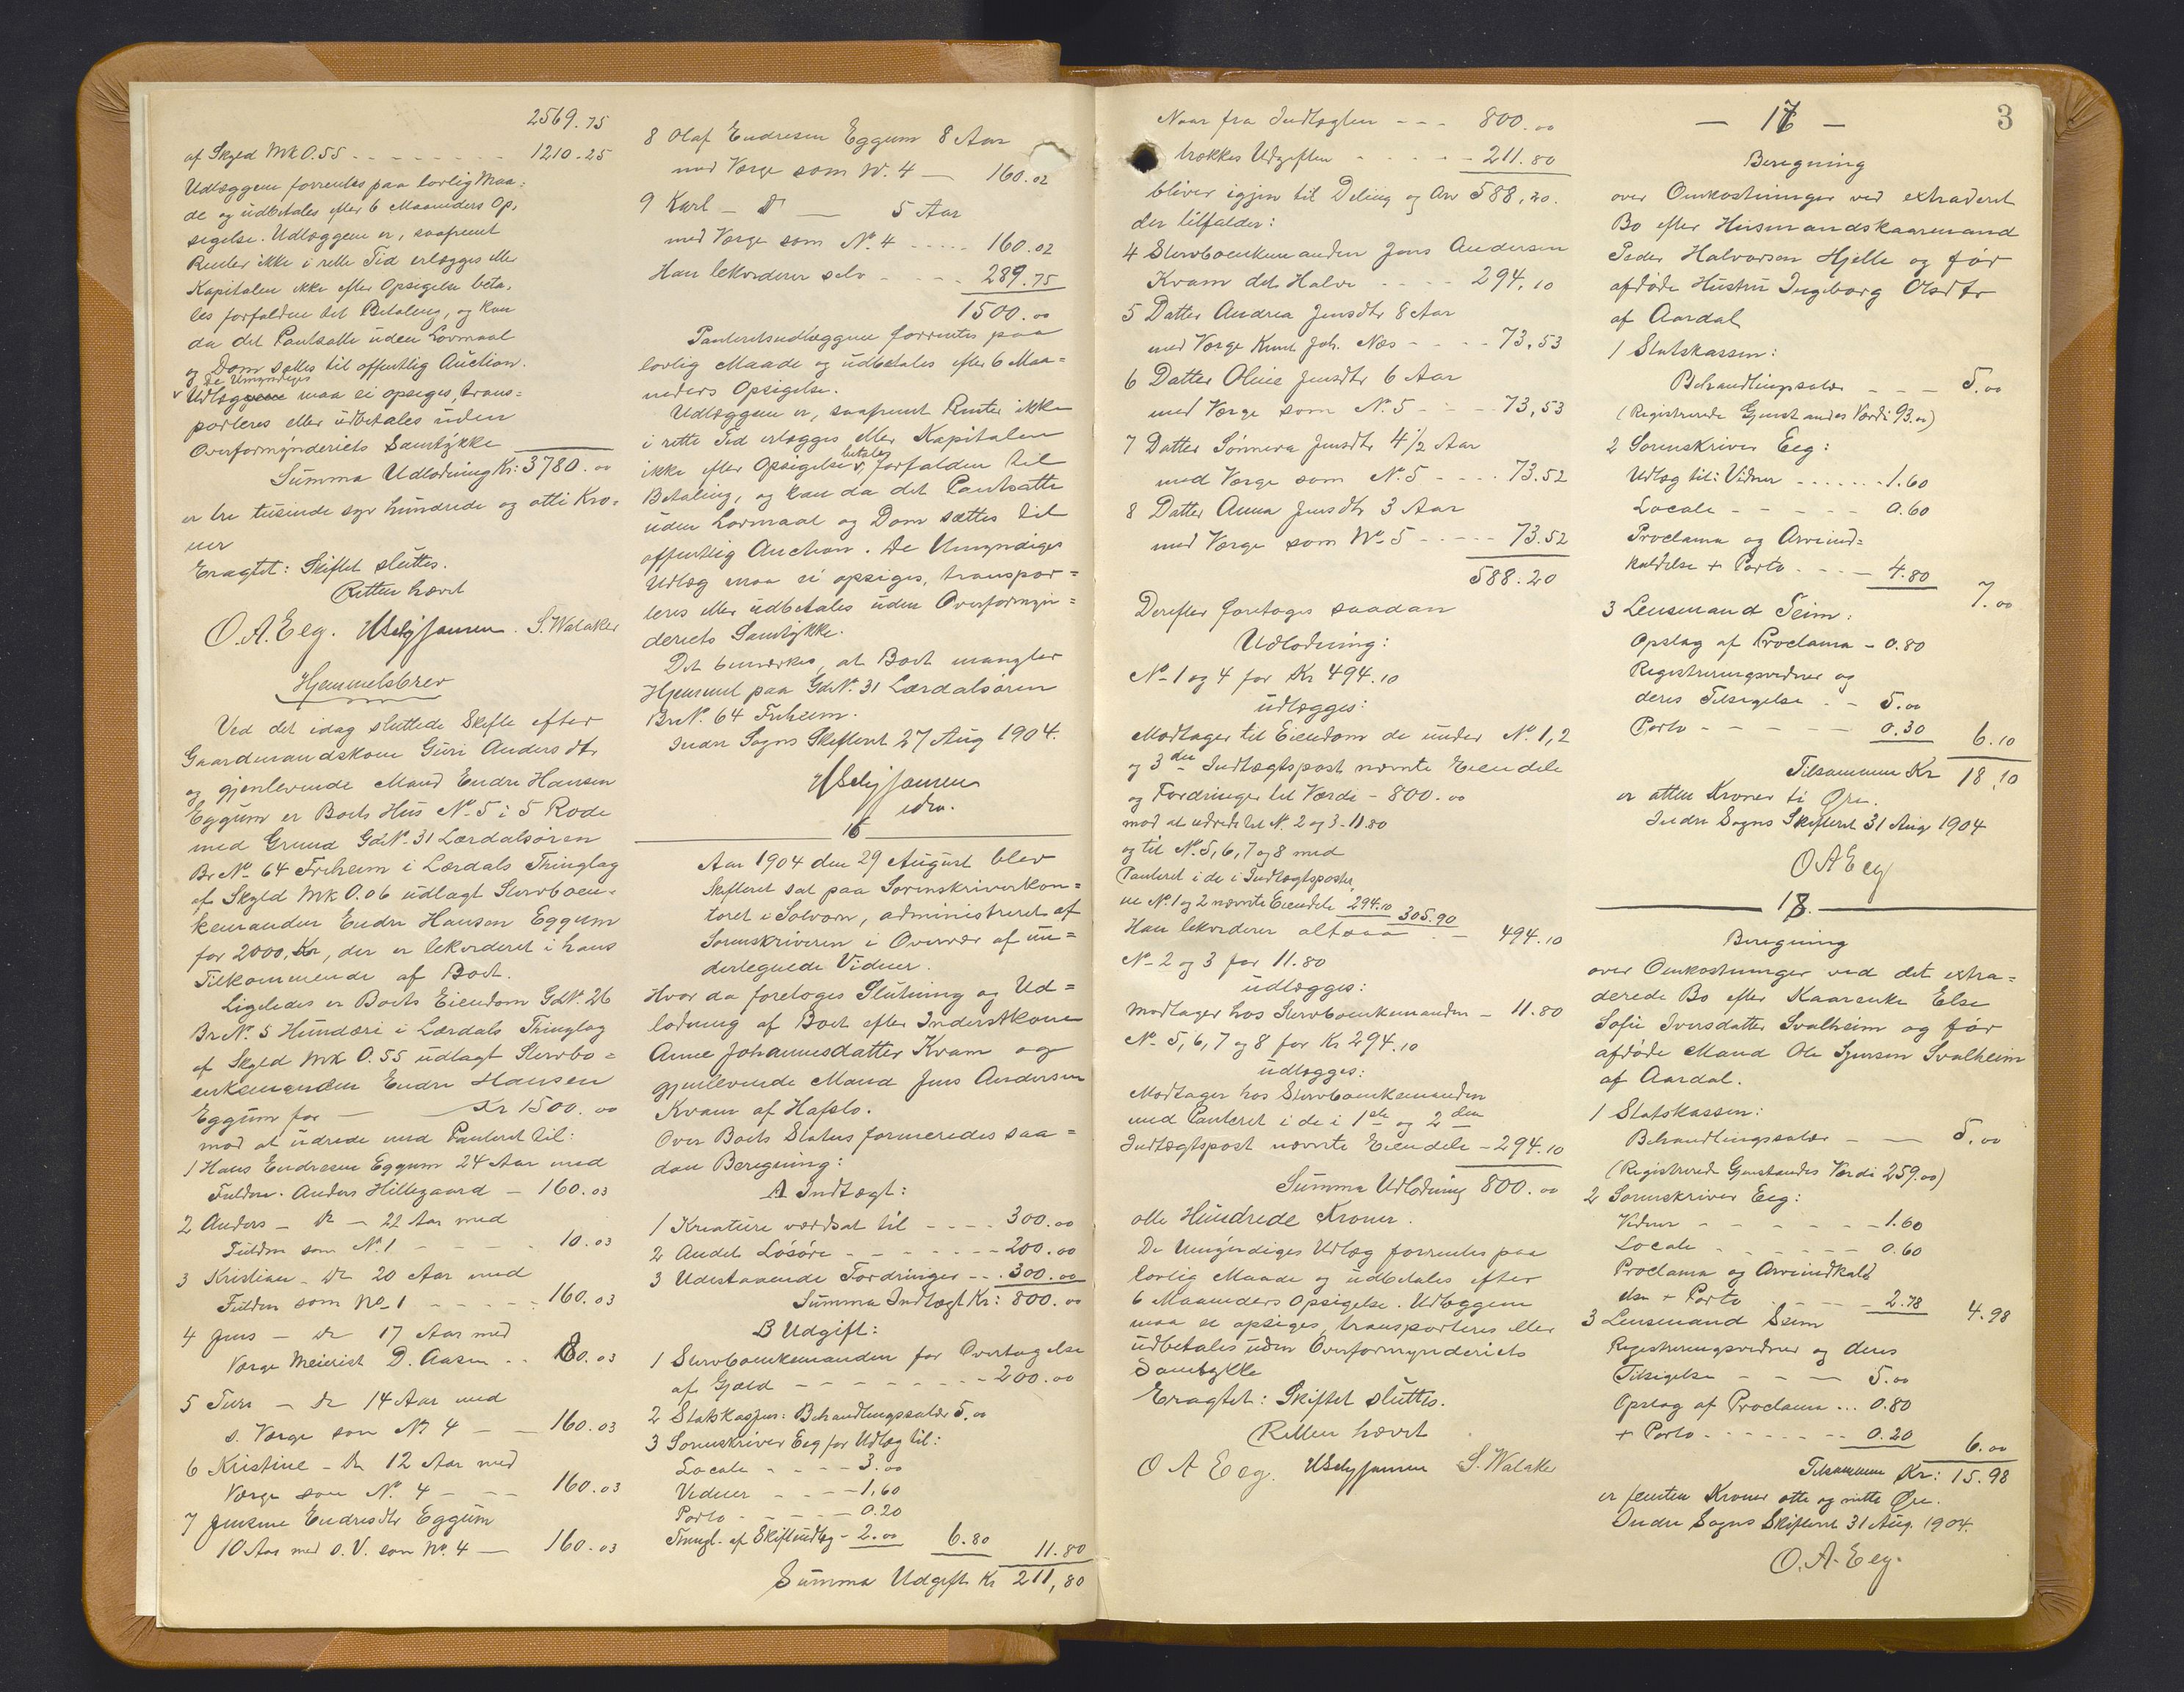 2569.75
af Skyld Mk 0.55 - - - - - - - 1210.25
Udlæggene forrentes paa lovlig Maa-
de og udbetales efter 6 Maaneders Op-
sigelse. Udlæggene er, saafremt
Renter ikke i rette Tid erlægges eller
Kapitalen ikke efter Opsigelse beta-
les forfaldne til Betaling, og kan
da det Pantsatte uden Lovmaal
og Dom sættes til offentlig Auction.
de Umyndiges
Udlæggene maa ei opsiges, trans-
porteres eller udbetales uden
Overformynderiets Samtykke
Summa Udlodning Kr: 3780.00
er tre tusinde syv hundrede og otti Kro-
ner
Eragtet: Skiftet sluttes.
Retten hævet
O.A. Eeg. S. Walaker
Hjemmelsbrev
Ved det idag sluttede Skifte efter
Gaardmandskone Guri Andersdtr
og gjenlevende Mand Endre Hansen
Eggum er Boets Hus No 5 i 5 Rode
med Grund GdNo. 31 Lærdalsøren
BrNo 64 Friheim i Lærdals Thinglag
af Skyld Mk 0.06 udlagt Stervboen-
kemanden Endre Hansen Eggum
for 2000, Kr, der er lekvideret i hans
Tilkommende af Boet.
Ligeledes er Boets Eiendom GdNo. 26
BrNo. 5 Hundære i Lærdals Thinglag
af Skyld Mk 0.55 udlagt Stervbo-
enkemanden Endre Hansen
Eggum for — Kr 1500.00
mod at udrede med Panteret til:
1 Hans Endresen Eggum 24 Aar med
Fuldm. Anders Hillegaard - 160.03
2 Anders - Do - 22 Aar med
Fuldm som No. 1 - - - 10.03
3 Kristian - Do 20 Aar med
Fuldm som No 1 - - - - 160.03
4 Jens - Do 17 Aar med
Værge Meierist D. Aasen . . 80.03
5 Turi - Do 14 Aar med
s. Værge som No 4 - - 160.03
6 Kristine - Do 12 Aar med
Værge som No. 4 - - - 160.03
7 Jensine Endresdtr Eggum
10 Aar med s. V. som No. 4 — 160.03
8 Olaf Endresen Eggum 8 Aar
med Værge som No. 4 — 160.02
9 Karl - Do — 5 Aar
med Værge som No. 4 - - - - 160.02
Han lekviderer selv - - - - 289.75
1500.00
Panteretsudlæggene forrentes paa
lovlig Maade og udbetales efter 6 Maa-
neders Opsigelse.
Udlæggene er, saafremt Renter ikke
i rette Tid erlægges eller Kapitalen
ikke efter Opsigelse betales, forfalden til
Betaling, og kan da det Pantsatte
uden Lovmaal og Dom sættes til
offentlig Auction. De Umyndiges
Udlæg maa ei opsiges, transpor-
teres eller udbetales uden Overformyn-
deriets Samtykke.
Det bemærkes, at Boet mangler
Hjemmel paa GdNo. 31 Lærdalsøren
BrNo. 64 Friheim.
Indre Sogns Skifteret 27 Aug 1904.
16
Aar 1904 den 29 August blev
Skifteret sat paa Sorenskriverkon-
toret i Solvorn, administreret af
Sorenskriveren i Overvær af un-
dertegnede Vidner.
Hvor da foretoges Slutning og Ud-
lodning af Boet efter Inderstkone
Anne Johannesdatter Kvam og
gjenlevende Mand Jens Andersen
Kvam af Hafslo.
Over Boets Status formeredes saa-
dan Beregning:
A Indtægt:
1 Kreature værdsat til - - - - 300.00
2 Andet Løsøre - - - - - - - 200.00
3 Udestaaende Fordringer - - . 300.00
Summa Indtægt Kr: 800.00
B Udgift:
1 Stervboenkemanden for Overtagelse
af Gjæld - - - - - - - - 200.00
2 Statskassen: Behandlingssalær 5.00
3 Sorenskriver Eeg for Udlæg til:
Locale - - - - 3.00
Vidner - - - - 1,60
Porto - - - - - 0.20
Thingl. af Skifteudlæg - 2.00 6.80 11.80
Summa Udgift Kr 211,80
3
Naar fra Indtægten - - - 800.00
trækkes Udgiften - - - - - 211.80
bliver igjen til Deling og Arv 588,20.
der tilfalder:
4 Stervboenkemanden Jens Andersen
Kvam det Halve - - - - 294,10
5 Datter Andrea Jensdtr 8 Aar
med Værge Knut Joh. Næs - - - - 73,53
6 Datter Oline Jensdtr 6 Aar
med Værge som No. 5 - - - 73,53
7 Datter Sønneva Jensdtr 4 1/2 Aar
med Værge som No. 5 - - - - 73.52
8 Datter Anna Jensdtr 3 Aar
med Værge som No 5 - - - - - 73.52
588.20
Derefter foretoges saadan
Udlodning:
No 1 og 4 for Kr 494.10
udlægges:
Modtager til Eiendom de under No. 1, 2
og 3die Indtægtspost nævnte Eiendele
og Fordringer til Værdi - 800.00
mod at udrede til No. 2 og 3 - 11.80
og til No. 5, 6, 7 og 8 med
Panteret i de i Indtægtsposter
ne No. 1 og 2 nævnte Eiendele 294.10 305.90
Han lekviderer altsaa - 494.10
No 2 og 3 for 11.80
udlægges:
Modtager hos Stervboenkemanden - 11.80
No. 5, 6, 7 og 8 for Kr 294.10
udlægges:
Modtager hos Stervboenkemanden
med Panteret i de i 1ste og 2den
Indtægtspost nævnte Eiendele - 294.10
Summa Udlodning 800.00
otte Hundrede Kroner.
De Umyndiges Udlæg forrentes paa
lovlig Maade og udbetales efter
6 Maaneders Opsigelse. Udlæggene
maa ei opsiges, transporteres eller
udbetales uden Overformynderiets
Samtykke
Eragtet: Skiftet sluttes.
Retten hævet
O A Eeg. S. Walaker
— 17 —
Beregning
over Omkostninger ved extraderet
Bo efter Husmandskaarmand
Peder Halvorsen Hjelle og før
afdøde Hustru Ingeborg Olsdtr
af Aardal
1 Statskassen:
Behandlingssalær - - - 5.00
(Registrerede Gjenstandes Værdi 93.00)
2 Sorenskriver Eeg:
Udlæg til: Vidner - - - - - - - 1.60
Locale - - - - - 0.60
Proclama og Arveind-
kaldelse + Porto - - - - 4.80 7.00
3 Lensmand Seim:
Opslag af Proclama - 0.80
Registreringsvidner og
deres Tilsigelse - - 5.00
Porto - - - - - 0.30 6.10
Tilsammen Kr 18,10
er atten Kroner ti Øre.
Indre Sogns Skifteret 31 Aug 1904
O A Eeg
18.
Beregning
over Omkostninger ved det extra-
derede Bo efter Kaarenke Else
Sofie Iversdatter Svalheim og før
afdøde Mand Ole Sjursen Svalheim
af Aardal.
1 Statskassen:
Behandlingssalær - — 5.00
(Registrerede Gjenstandes Værdi 259.00)
2 Sorenskriver Eeg:
Vidner - - - - - - - 1.60
Locale - - - - - - 0.60
Proclama og Arveindkald
else + Porto - - - - 2.78 4.98
3 Lensmand Seim
Registreringsvidner og deres
Tilsigelse - - — 5.00
Opslag af Proclama . . . 0.80
+ Porto - - - - - - - 0.20 6.00
Tilsammen Kr: 15.98
er femten Kroner otte og nitti Øre.
Indre Sogns Skifteret 31 Aug. 1904.
O. A. Eeg.